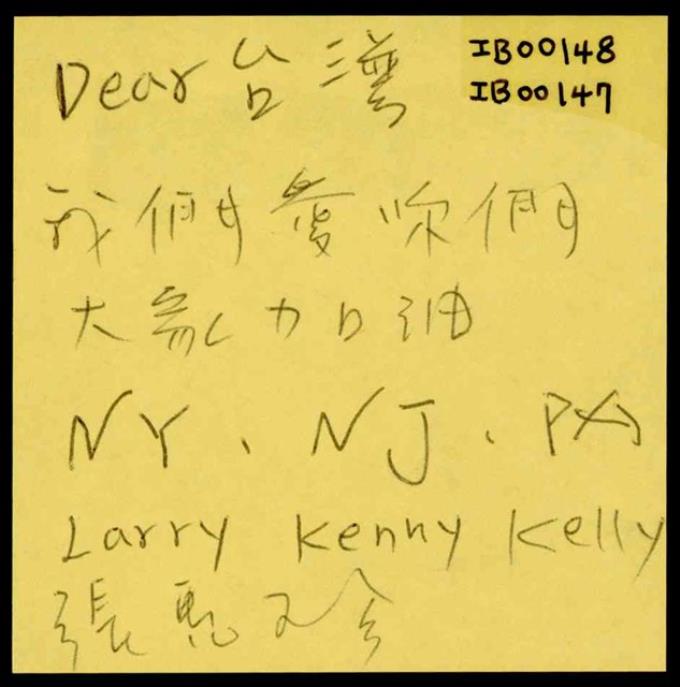 Dear 台灣
IB00148
IB00147
我們愛你們
大家加油
NY、NJ、PA
Larry Kenny Kelly
張惠玲